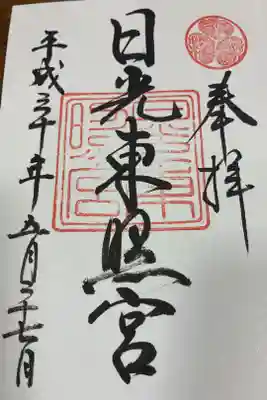 奉拝
日光東照宮
平成三十年五月二十七日